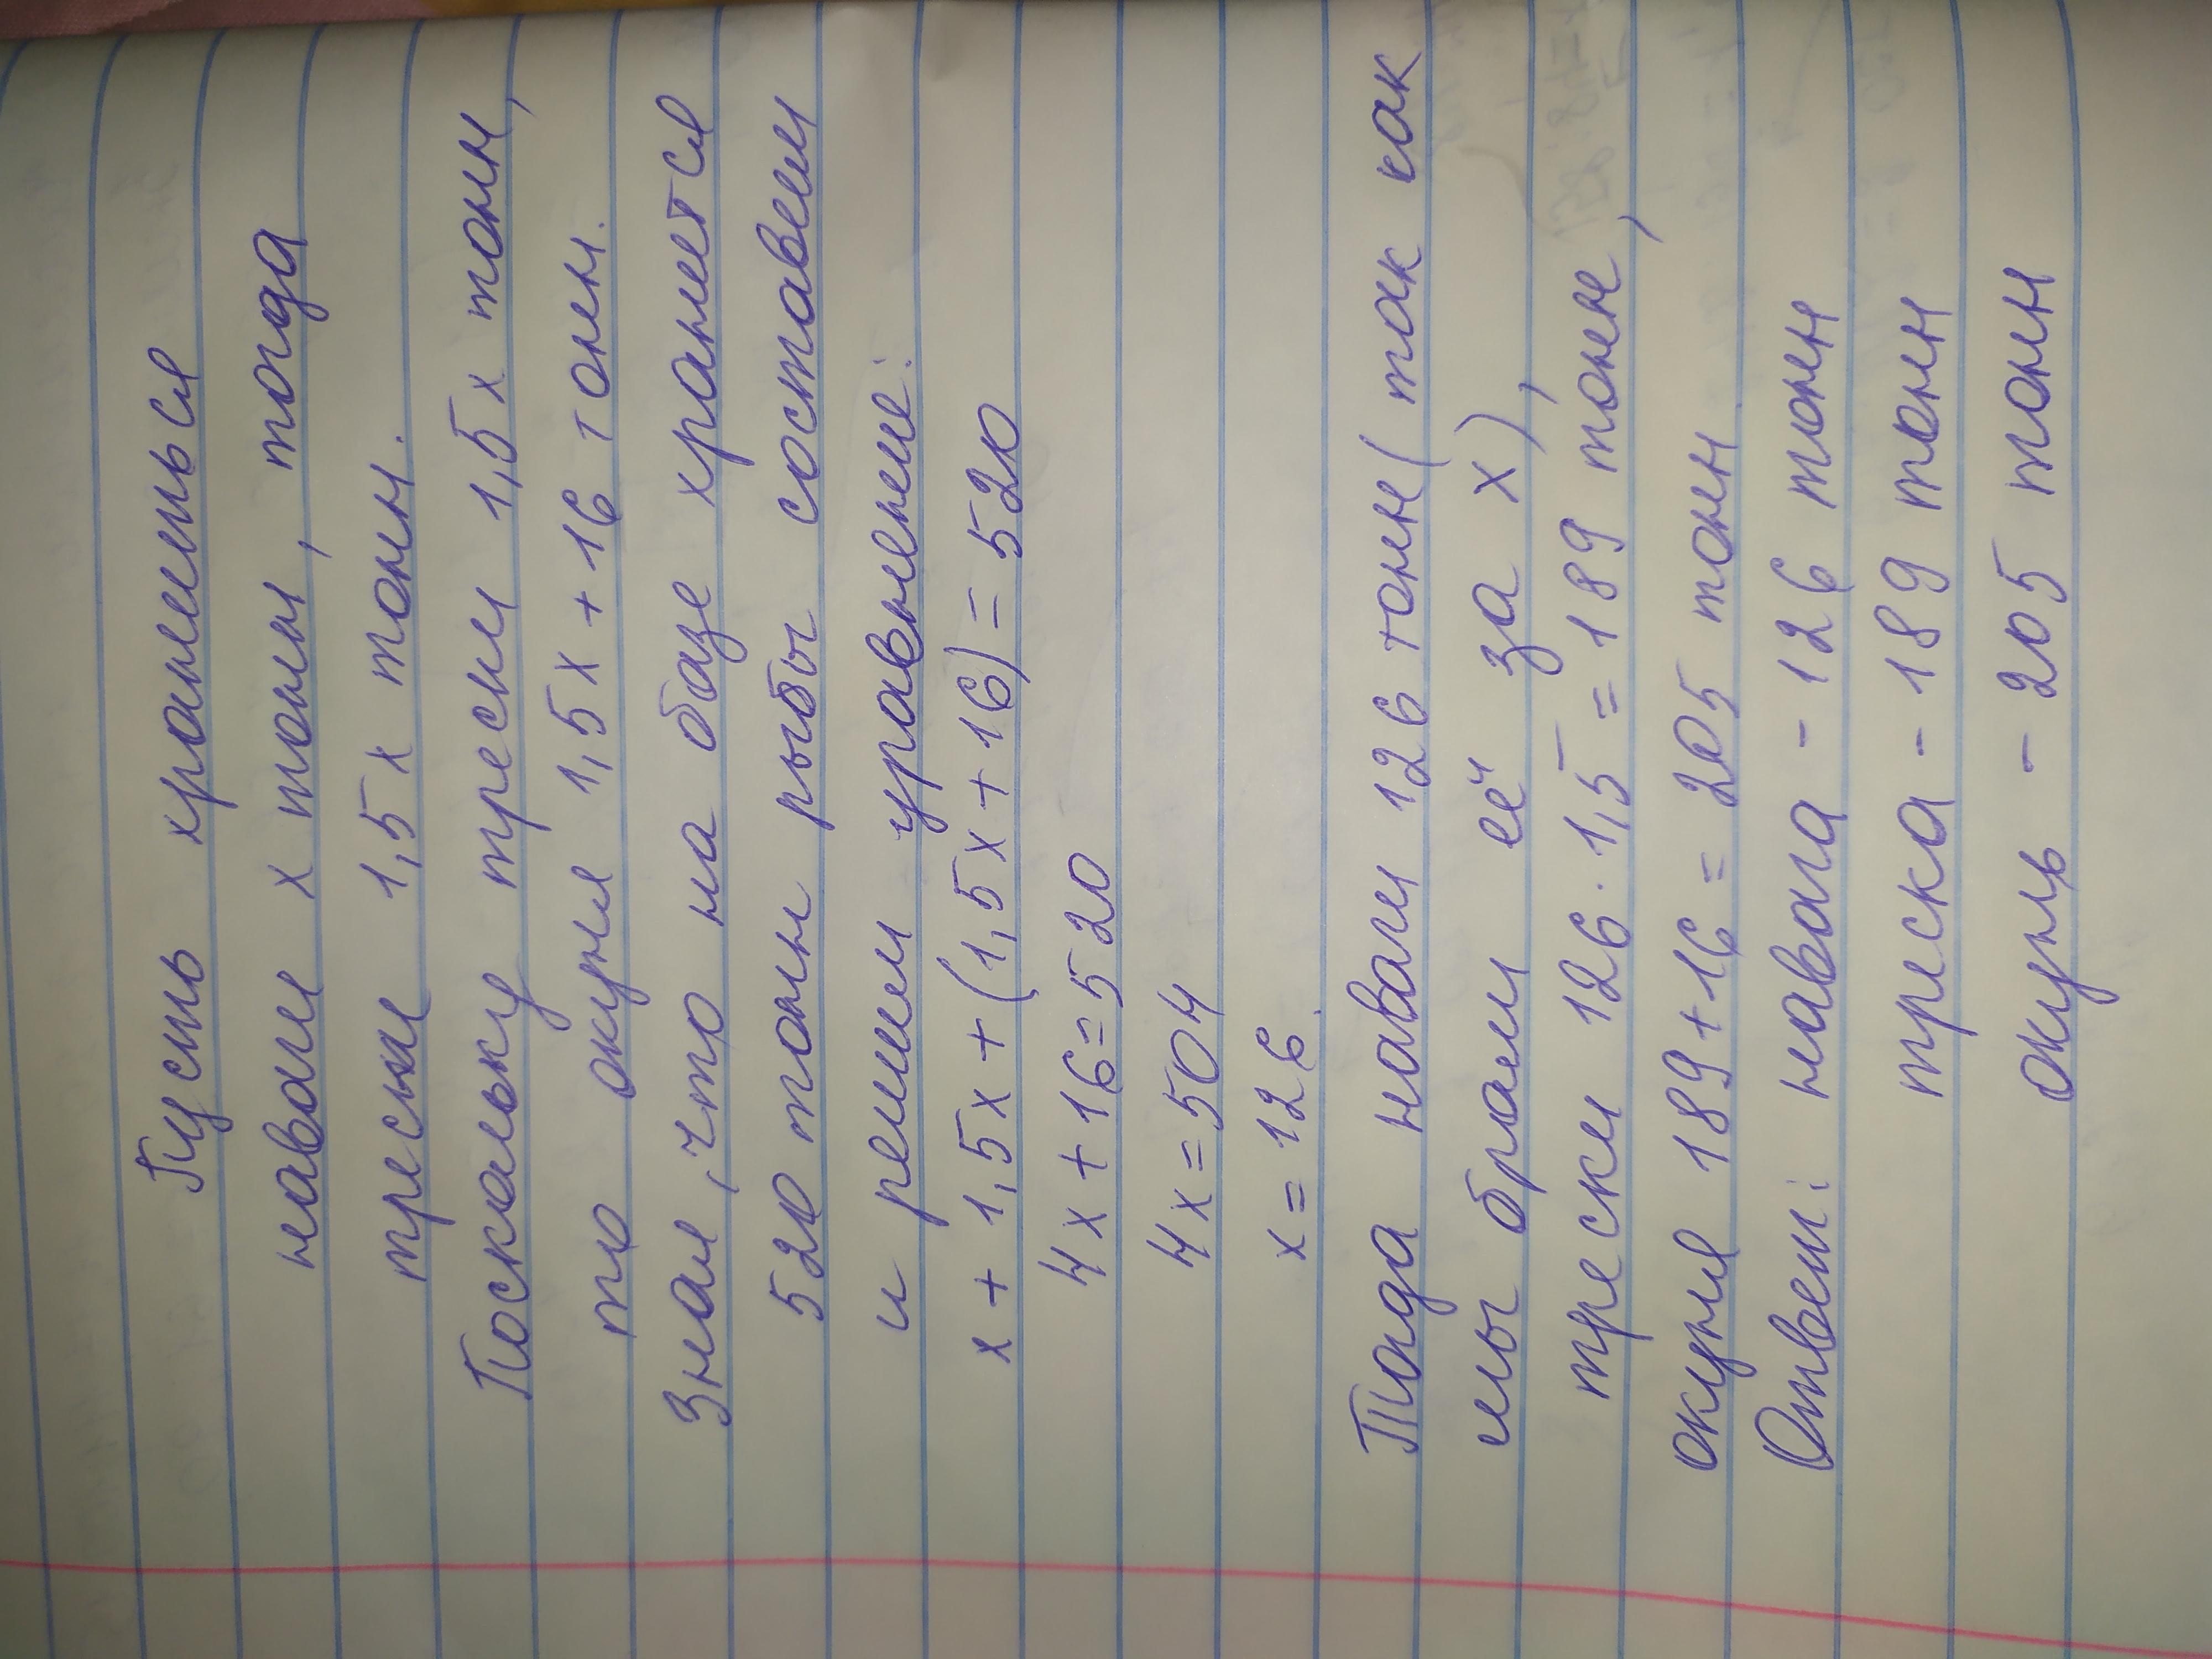 Пусть хранениься
наваги х тонн, тогда
трески 1,5х тонн.
Поскольку трески 1,5х тонн,
то окуня 1,5х + 16 тонн.
Зная, что на базе хранится
520 тонн рыбы составим
и решим уравнение:
х + 1,5х + (1,5х + 16) = 520
4х + 16 = 520
4х = 504
х = 126.
Тогда наваги 126 тонн (так как
мы брали её за х),
трески 126 · 1,5 = 189 тонн,
окуня 189 + 16 = 205 тонн.
Ответ: навага - 126 тонн
треска - 189 тонн
окунь - 205 тонн